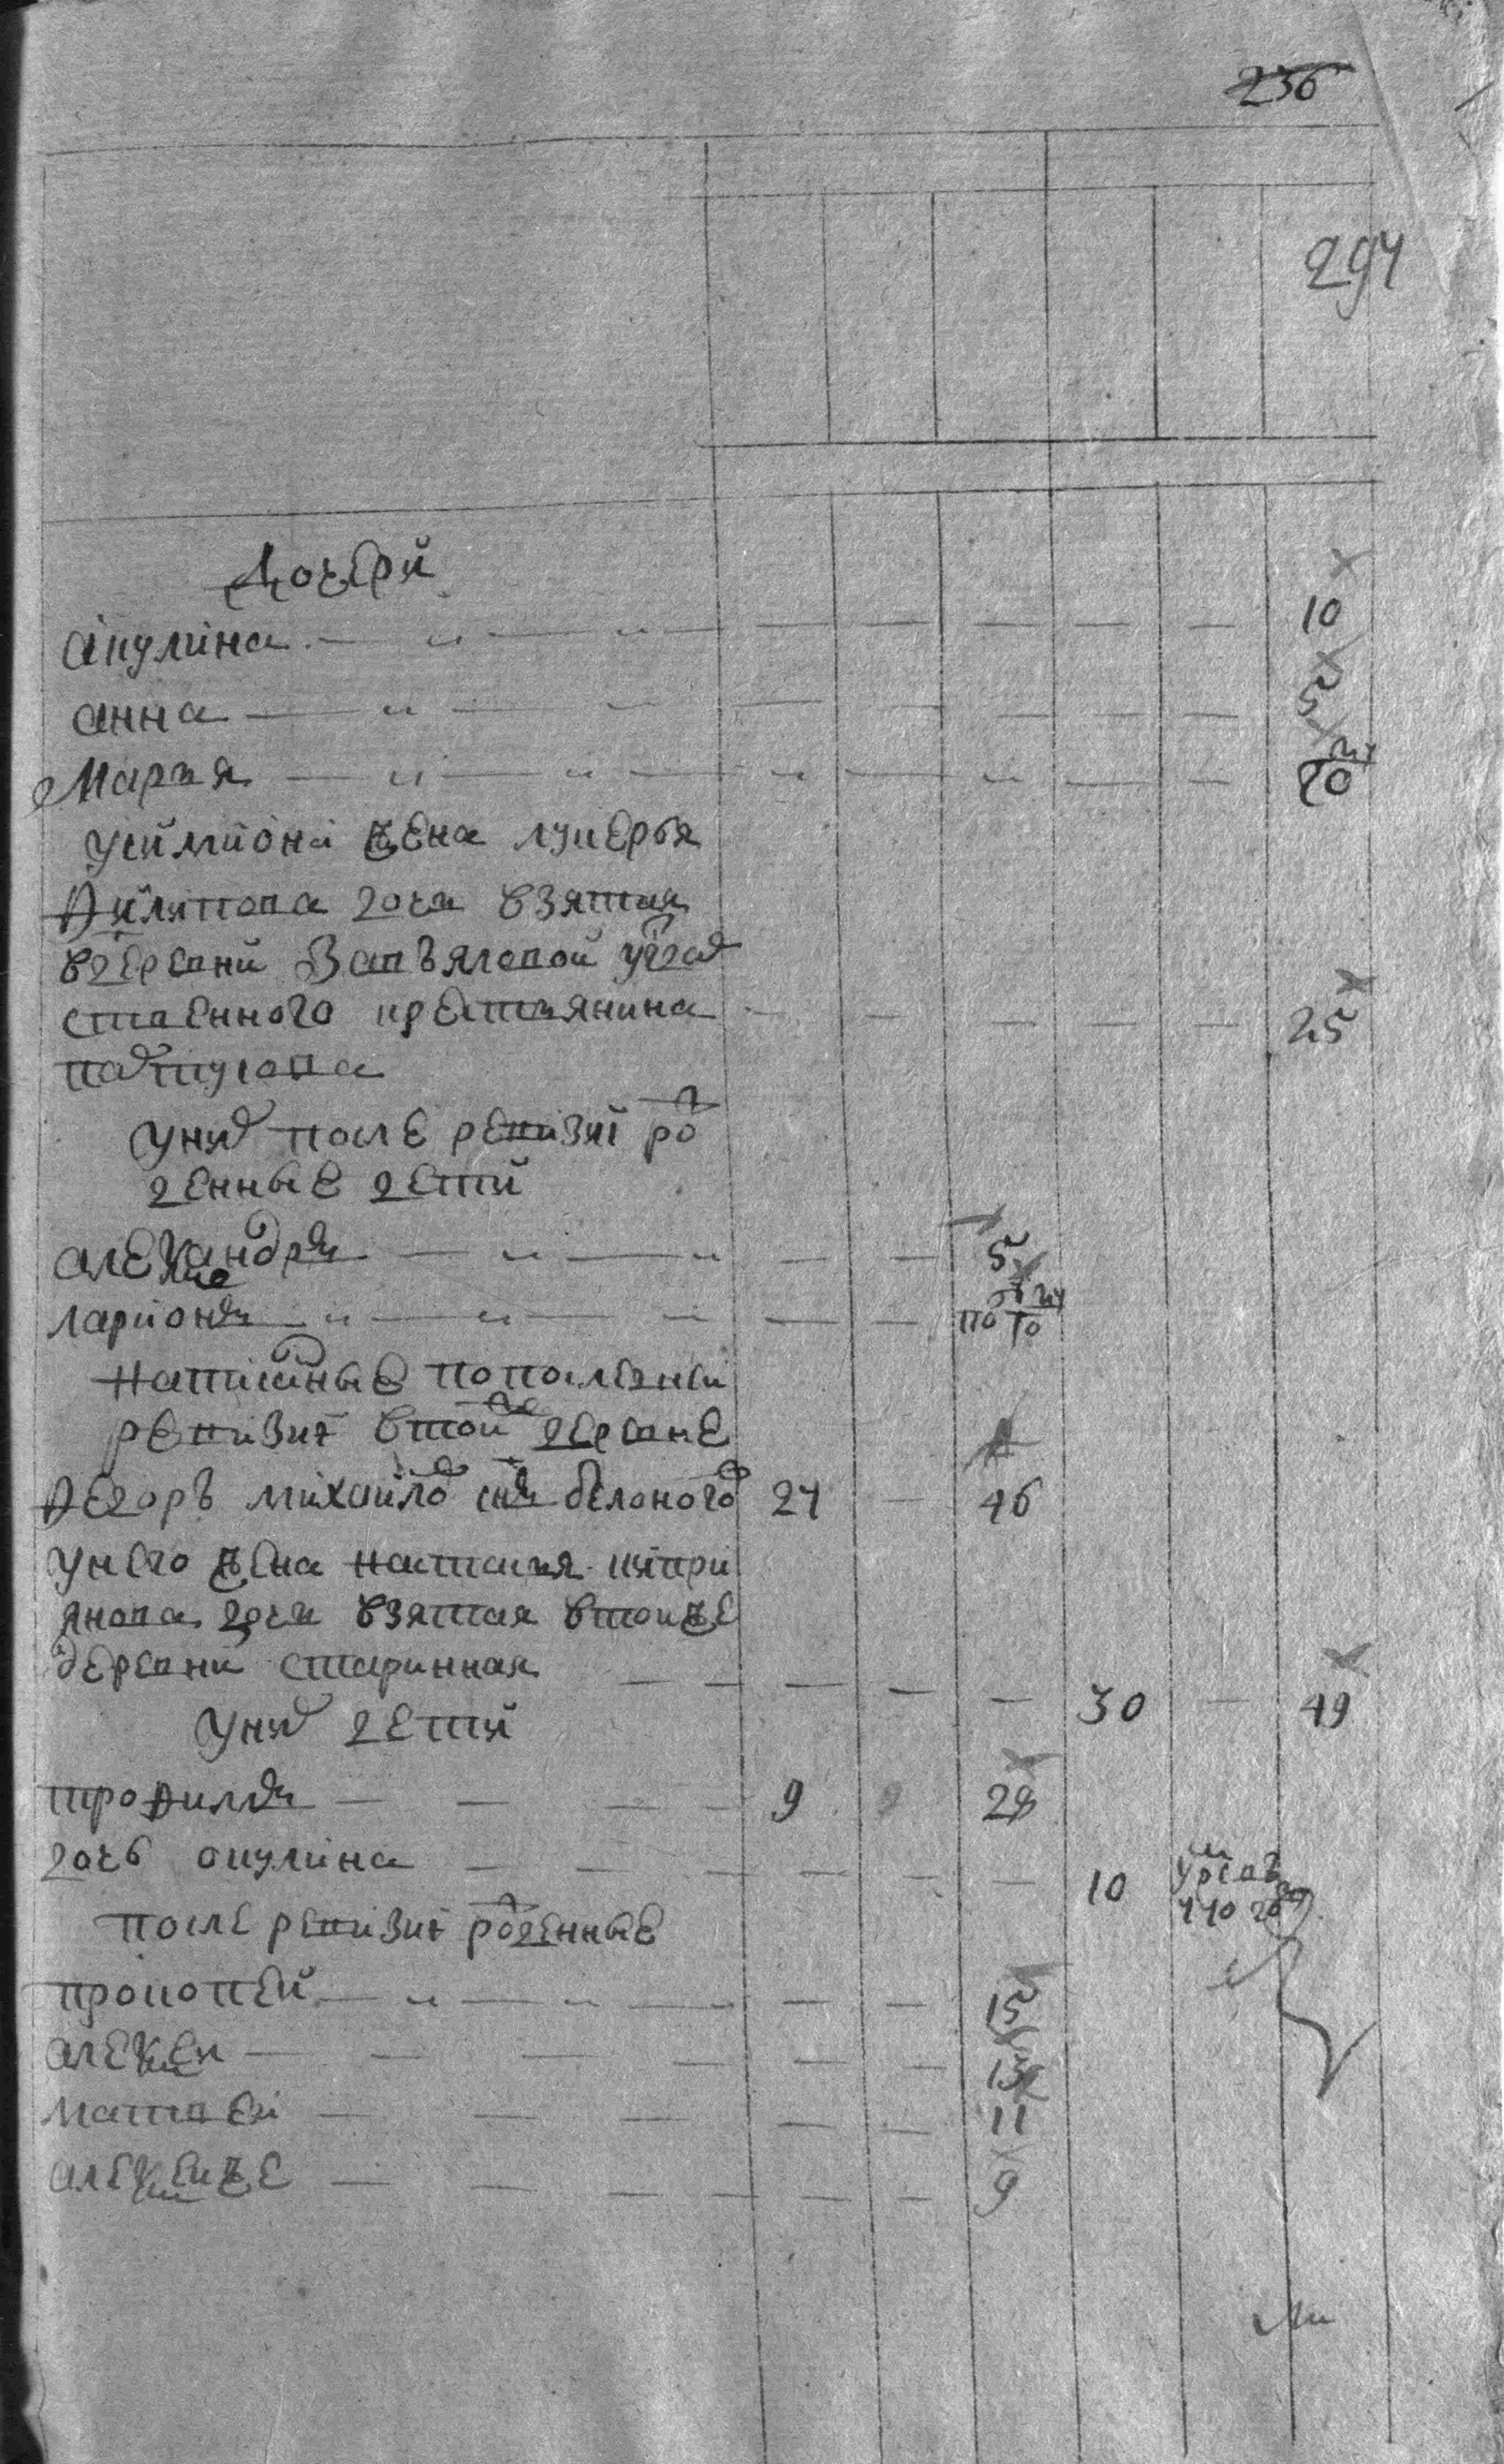 236
294
дочери
акулина 10
анна 5
Марья 20
усимиона жена лукерья
Филипова дочь взятая
вдеревни Завьяловой
ственного крестьянина 25
Уних после ревизиі ро
денные дети
александръ 5
ларионъ по 10
написанные попоследней
ревизиі втой деревне
Федоръ михайловъ снъ белоногов 24 46
унего жена наталья кипри
янова дочь взятая втоиже
деревни старинная 30 49
Уних дети
трофимъ 9 28
дочь окулина 10
после ревизиі роденные
прокопей 15
алексеи 13
матвеи 11
алексеиже 9